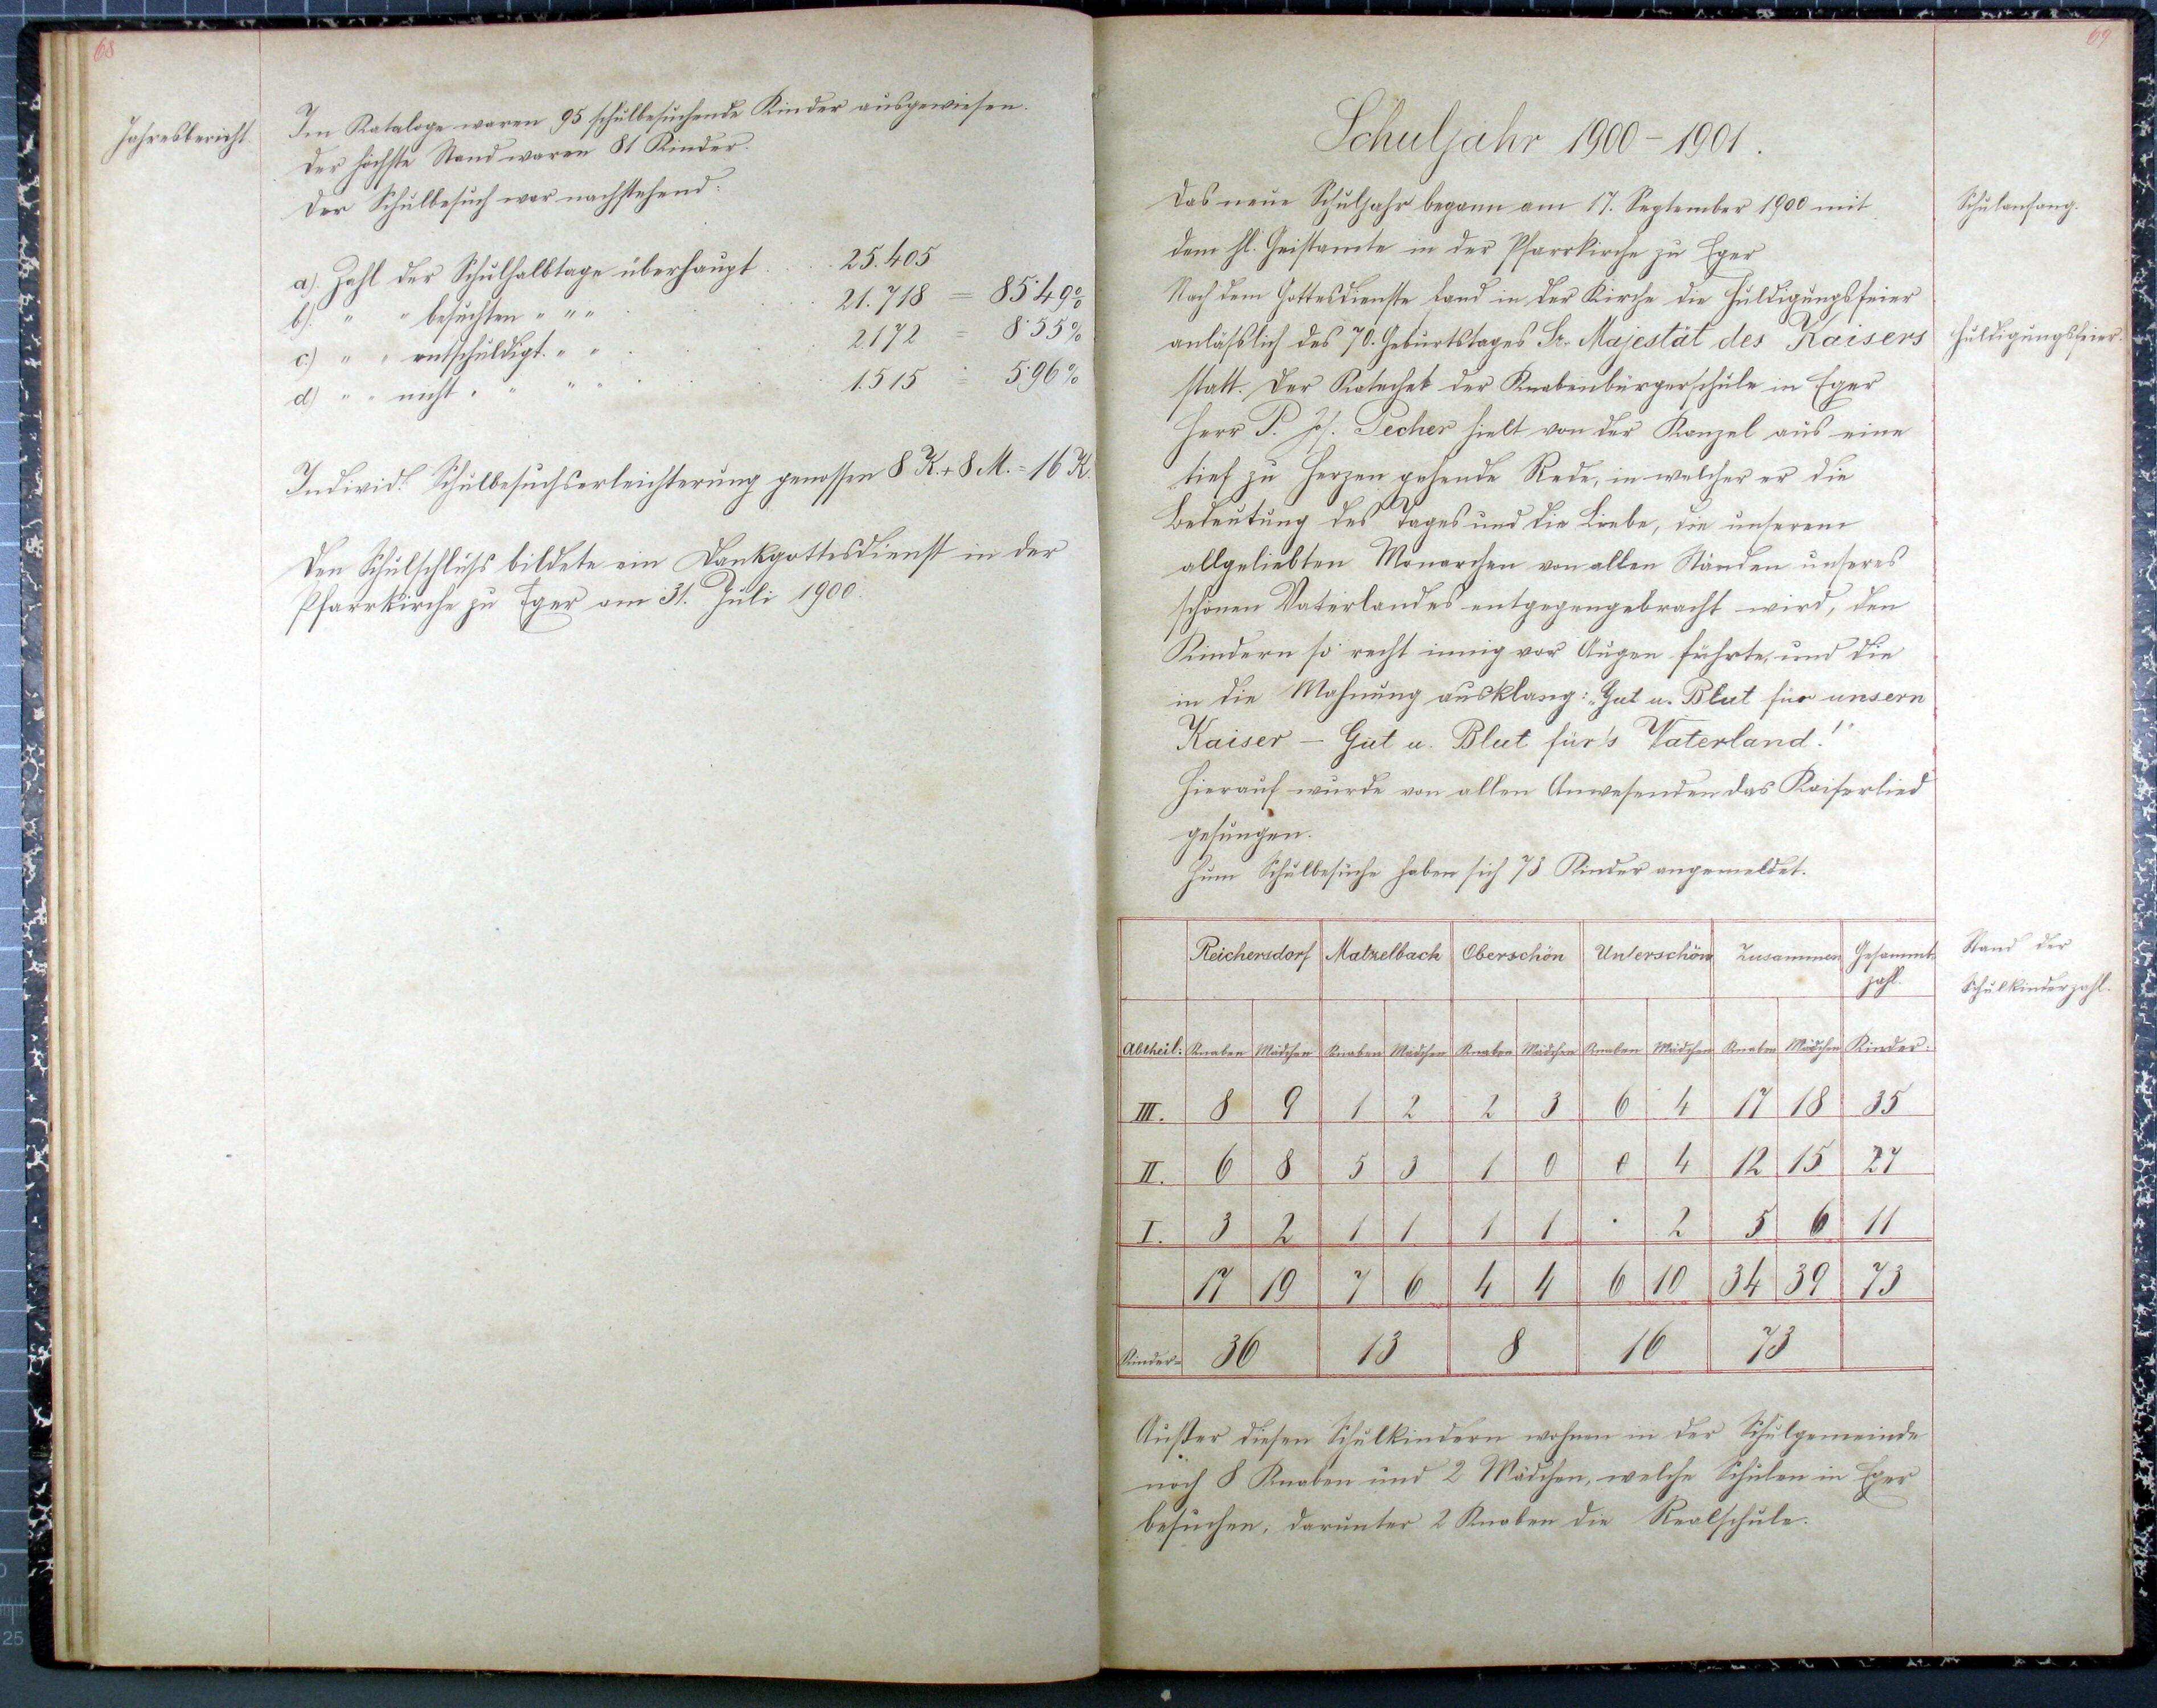 68
Jahresbericht.
Im Kataloge waren 95 schulbesuchende Kinder ausgewiesen.
Der höchste Stand waren 81 Kinder.
Der Schulbesuch war nachstehend:
a). Zahl der Schulhalbtage überhaupt . . 25.405
b). " " besuchten " " " . . 21.718 = 85·49%
c.) " " entschuldigt. " " . . 2172 = 8·55%
d) " " nicht " " " " . . 1.515 = 5·96%
Individ. Schulbesuchserleichterung genossen 8 K. + 8 M. = 16 K.
Den Schulschluss bildete ein Dankgottesdienst in der
Pfarrkirche zu Eger am 31. Juli 1900.
69
Schuljahr 1900 – 1901.
Das neue Schuljahr begann am 17. September 1900 mit
Schulanfang.
dem hl. Geistamte in der Pfarrkirche zu Eger
Nach dem Gottesdienste fand in der Kirche die Huldigungsfeier
anlässlich des 70. Geburtstages Sr. Majestät des Kaisers
Huldigungsfeier.
statt. Der Katechet der Knabenbürgerschule in Eger
Herr P. Jos. Pecher hielt von der Kanzel aus eine
tief zu Herzen gehende Rede, in welcher er die
Bedeutung des Tages und die Liebe, die unserem
allgeliebten Monarchen von allen Ständen unseres
schönen Vaterlandes entgegengebracht wird, den
Kindern so recht innig vor Augen führte, und die
in die Mahnung ausklang: „Gut u. Blut für unsern
Kaiser – Gut u. Blut für's Vaterland!"
Hierauf wurde von allen Anwesenden das Kaiserlied
gesungen.
Zum Schulbesuche haben sich 73 Kinder angemeldet.
Reichersdorf Matzelbach Oberschön Unterschön Zusammen Gesammt-
zahl.
Stand der
Schulkinderzahl.
Abtheil: Knaben Mädchen Knaben Mädchen Knaben Mädchen Knaben Mädchen Knaben Mädchen Kinder:
III. 8 9 1 2 2 3 6 4 17 18 35
II. 6 8 5 3 1 0 0 4 12 15 27
I. 3 2 1 1 1 1 · 2 5 6 11
17 19 7 6 4 4 6 10 34 39 73
Kinder= 36 13 8 16 73
Außer diesen Schulkindern wohnen in der Schulgemeinde
noch 8 Knaben und 2 Mädchen, welche Schulen in Eger
besuchen, darunter 2 Knaben die Realschule.